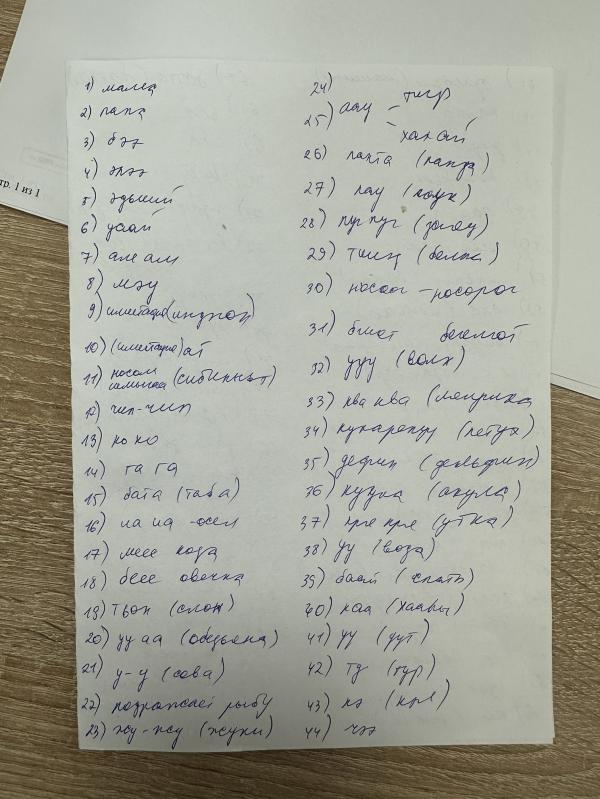 тр. 1 из 1
1) мама
2) папа
3) бээ
4) эпээ
5) эдьиий
6) убай
7) ам ам
8) мэу
9) имитация (индюк)
10) (имитация) ат
11) носом
(сибиинньэ)
12) чип-чип
13) ко ко
14) га га
15) бата (таба)
16) иа иа - осел
17) меее коза
18) беее овечка
19) тьон (слон)
20) уу аа (обезьяна)
21) у-у (сова)
22) подражает рыбу
23) жу-жу (жуки)
24)
25) аау - тигр
- хахай
26) папта (панда)
27) пау (паук)
28) пуг пуг
29) тииҥ (белка)
30) носоог - носорог
31) бмот бегемот
32) ууу (волк)
33) ква ква
34) кукарекуу (петух)
35) дефин (дельфин)
36) куука (акула)
37) кря кря (утка)
38) уу (вода)
39) баай (спать)
40) каа (хаары)
41) уу (уут)
42) ту (тур)
43) кэ (кэл)
44) чээ